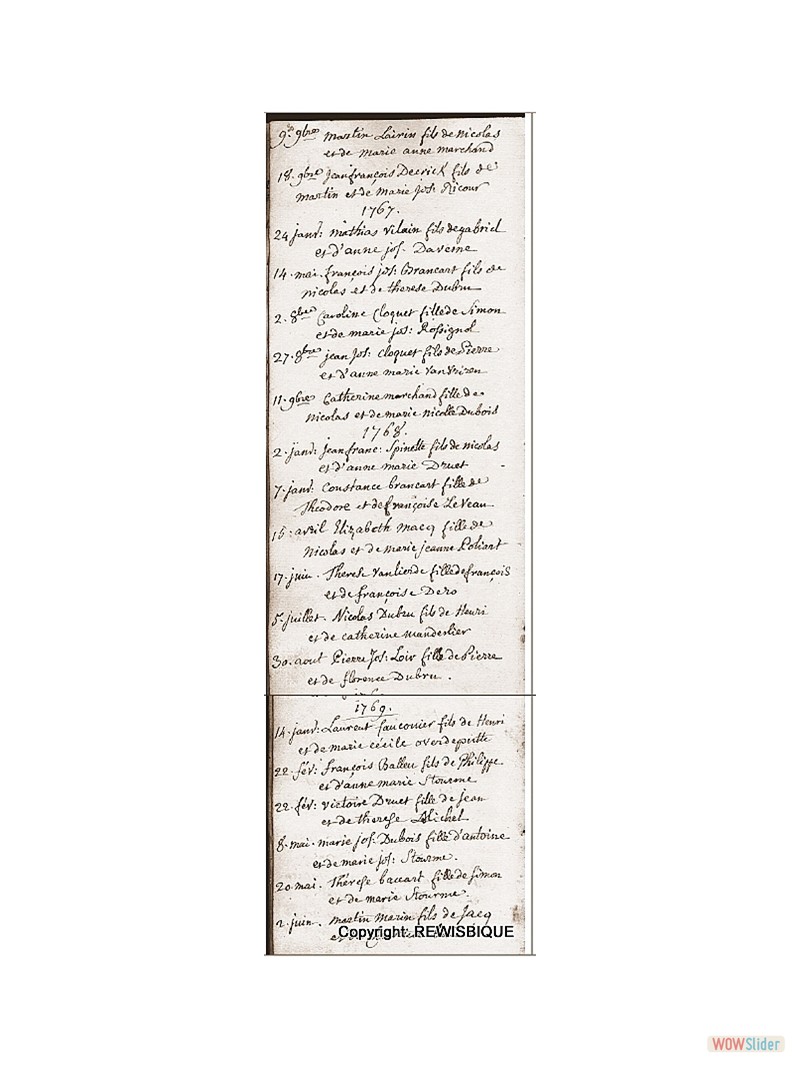 9bres martin Lairin fils de nicolas
et de marie anne marchand
18. 9bres jean françois Decrick fils de
martin et de marie jos: Ricour
1767.
24 janv: mathias vilain fils de gabriel
et d'anne jos. Daverne
14. mai. françois jos: Brancart fils de
nicolas et de therese Dubru
2. 8bres Caroline Cloquet fille de Simon
et de marie jos: Rossignol
27. 8bres jean jos: cloquet fils de Pierre
et d'anne marie vanvrizen
11. 9bres Catherine marchand fille de
nicolas et de marie nicolle Dubois
1768.
2. janv: jean franc: Spinette fils de nicolas
et d'anne marie Druet
7. janv: Constance brancart fille de
Theodore et de françoise Le Veau
16: avril Elizabeth macq fille de
Nicolas et de marie jeanne Poliart
17. juin. Therese vanlierde fille de françois
et de françoise Dero
5. juillet. Nicolas Dubru fils de Henri
et de catherine manderlier
30. aout Pierre Jos: Loir fille de Pierre
et de florence Dubru.
1769.
14. janv: Laurent fauconier fils de Henri
et de marie cécile overdeputte
22. fév: françois Balleu fils de Philippe
et d'anne marie Stourme
22. fév: victoire Druet fille de jean
et de therese Michel
8. mai. marie jos: Dubois fille d'antoine
et de marie jos: Stourme.
20. mai. Thérese baccart fille de simon
et de marie Stourme.
2. juin. martin marin fils de jacq
Copyright: REWISBIQUE
WOWSlider